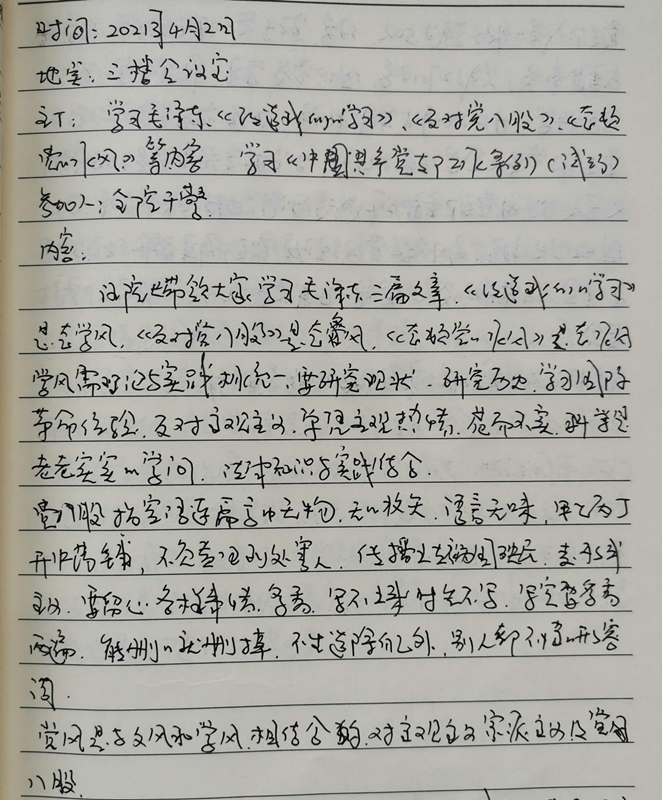 时间：2021年4月2日
地点：三楼会议室
主丁：学习毛泽东《改造我们的学习》、《反对党八股》、《整顿
党的作风》等内容 学习《中国共产党支部工作条例》（试行）
参加人：全院干警.
内容：
院长带领大家学习毛泽东三篇文章，《改造我们的学习》
是整学风，《反对党八股》是整文风，《整顿党的作风》是整作风
学风需理论与实践相统一，要研究现状、研究历史、学习国际
革命经验，反对主观主义，单凭主观热情，华而不实，科学是
老老实实的学问，法律知识与实践结合.
党八股指空话连篇言中无物，无的放矢，语言无味，甲乙丙丁
开中药铺，不负责任到处害人，传播出去祸国殃民，
主义，要留心各样事情，多看，写不出时候不写，写完至少看
两遍，能删的就删掉，不生造除自己外，别人都不懂的形容
词.
党风是与文风和学风相结合的，对主观主义宗派主义及党
八股.